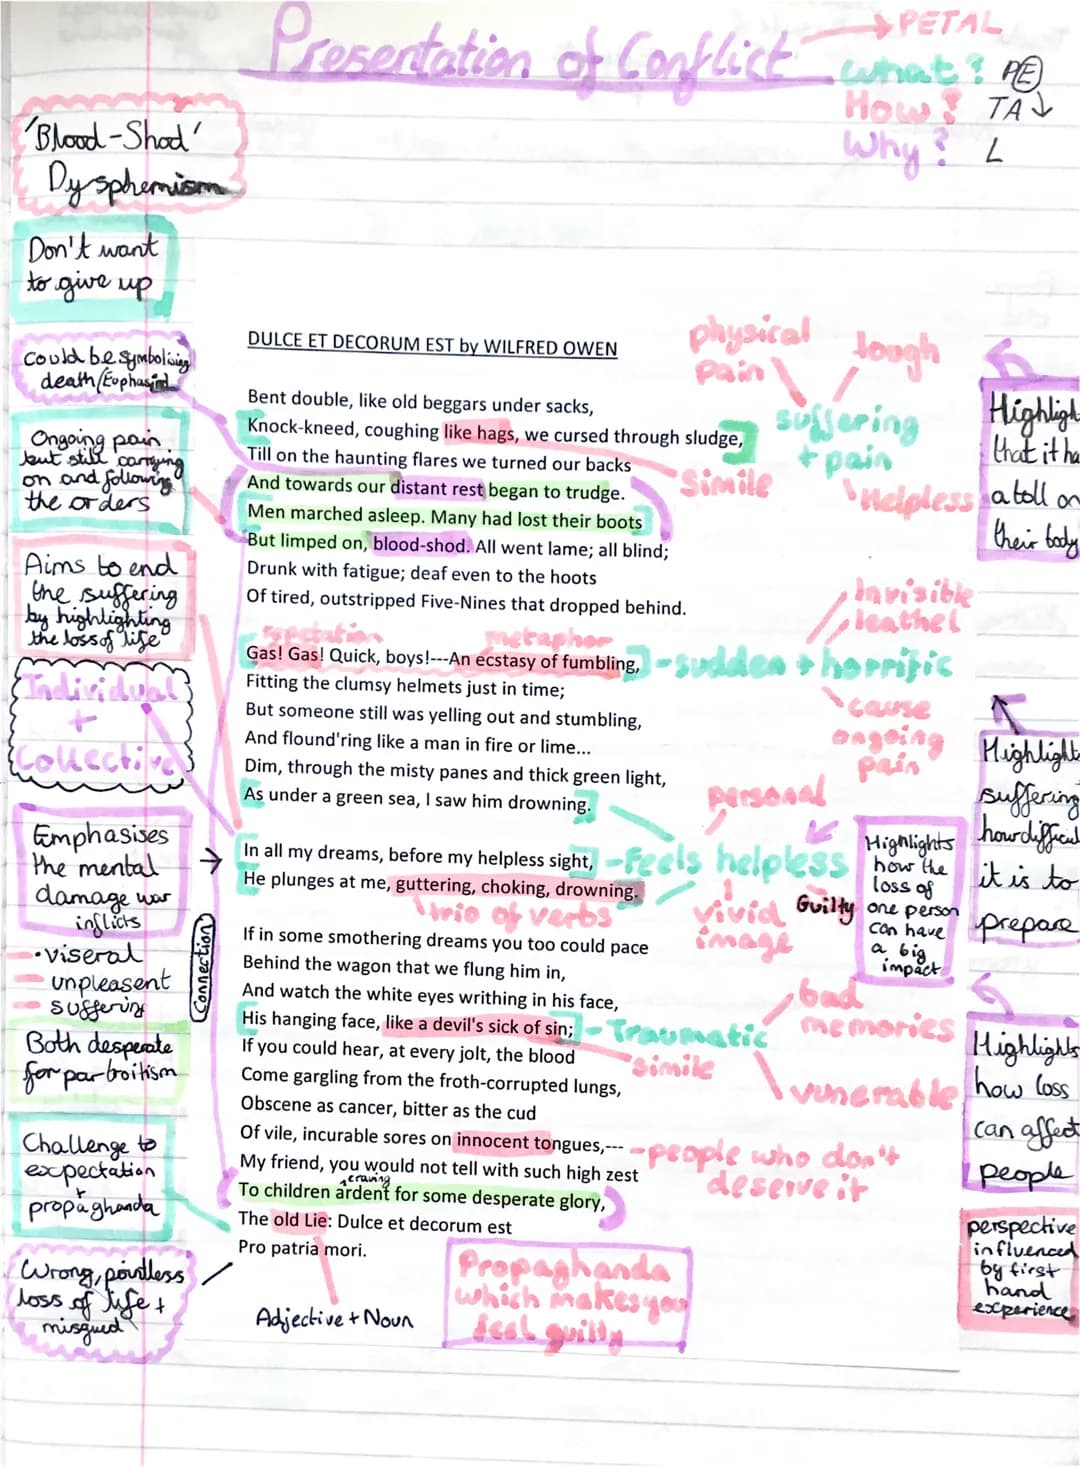 Presentation of Conflict
→ PETAL
What? PE
How? TA↓
Why? L
'Blood-Shod'
Dysphemism
Don't want
to give up
Could be symbolising
death/
Ongoing pain
but still carrying
on and following
the orders
Aims to end
the suffering
by highlighting
the loss of life
Individual
+
Collective
Emphasises
the mental
damage war
inflicts
• viseral
- unpleasent
- suffering
Connection
Both desperate
for par-boitism
Challenge to
expectation
+
propaghanda
Wrong, pointless
loss of life +
misgued
DULCE ET DECORUM EST by WILFRED OWEN
Bent double, like old beggars under sacks,
Knock-kneed, coughing like hags, we cursed through sludge,
Till on the haunting flares we turned our backs
And towards our distant rest began to trudge.
Men marched asleep. Many had lost their boots
But limped on, blood-shod. All went lame; all blind;
Drunk with fatigue; deaf even to the hoots
Of tired, outstripped Five-Nines that dropped behind.
repetation
metaphor
Gas! Gas! Quick, boys!---An ecstasy of fumbling,
Fitting the clumsy helmets just in time;
But someone still was yelling out and stumbling,
And flound'ring like a man in fire or lime...
Dim, through the misty panes and thick green light,
As under a green sea, I saw him drowning.
In all my dreams, before my helpless sight,
He plunges at me, guttering, choking, drowning.
trio of verbs
If in some smothering dreams you too could pace
Behind the wagon that we flung him in,
And watch the white eyes writhing in his face,
His hanging face, like a devil's sick of sin;
If you could hear, at every jolt, the blood
Come gargling from the froth-corrupted lungs,
Obscene as cancer, bitter as the cud
Of vile, incurable sores on innocent tongues,---
My friend, you would not tell with such high zest
craving
To children ardent for some desperate glory,
The old Lie: Dulce et decorum est
Pro patria mori.
Adjective + Noun
Propaghanda
which makes you
feel guilty
physical
pain
tough
suffering
+ pain
Simile
Helpless
Invisible
leathel
- sudden + horrific
cause
ongoing
pain
personal
- Feels helpless
vivid
image
Guilty
Highlights
how the
loss of
one person
can have
a big
impact
- Traumatic
bad
memories
simile
vunerable
- people who don't
deserve it
Highlig
that it ha
a toll on
their body
Highlight
suffering
how difficul
it is to
prepare
Highlights
how loss
can affect
people
perspective
influenced
by first
hand
experience